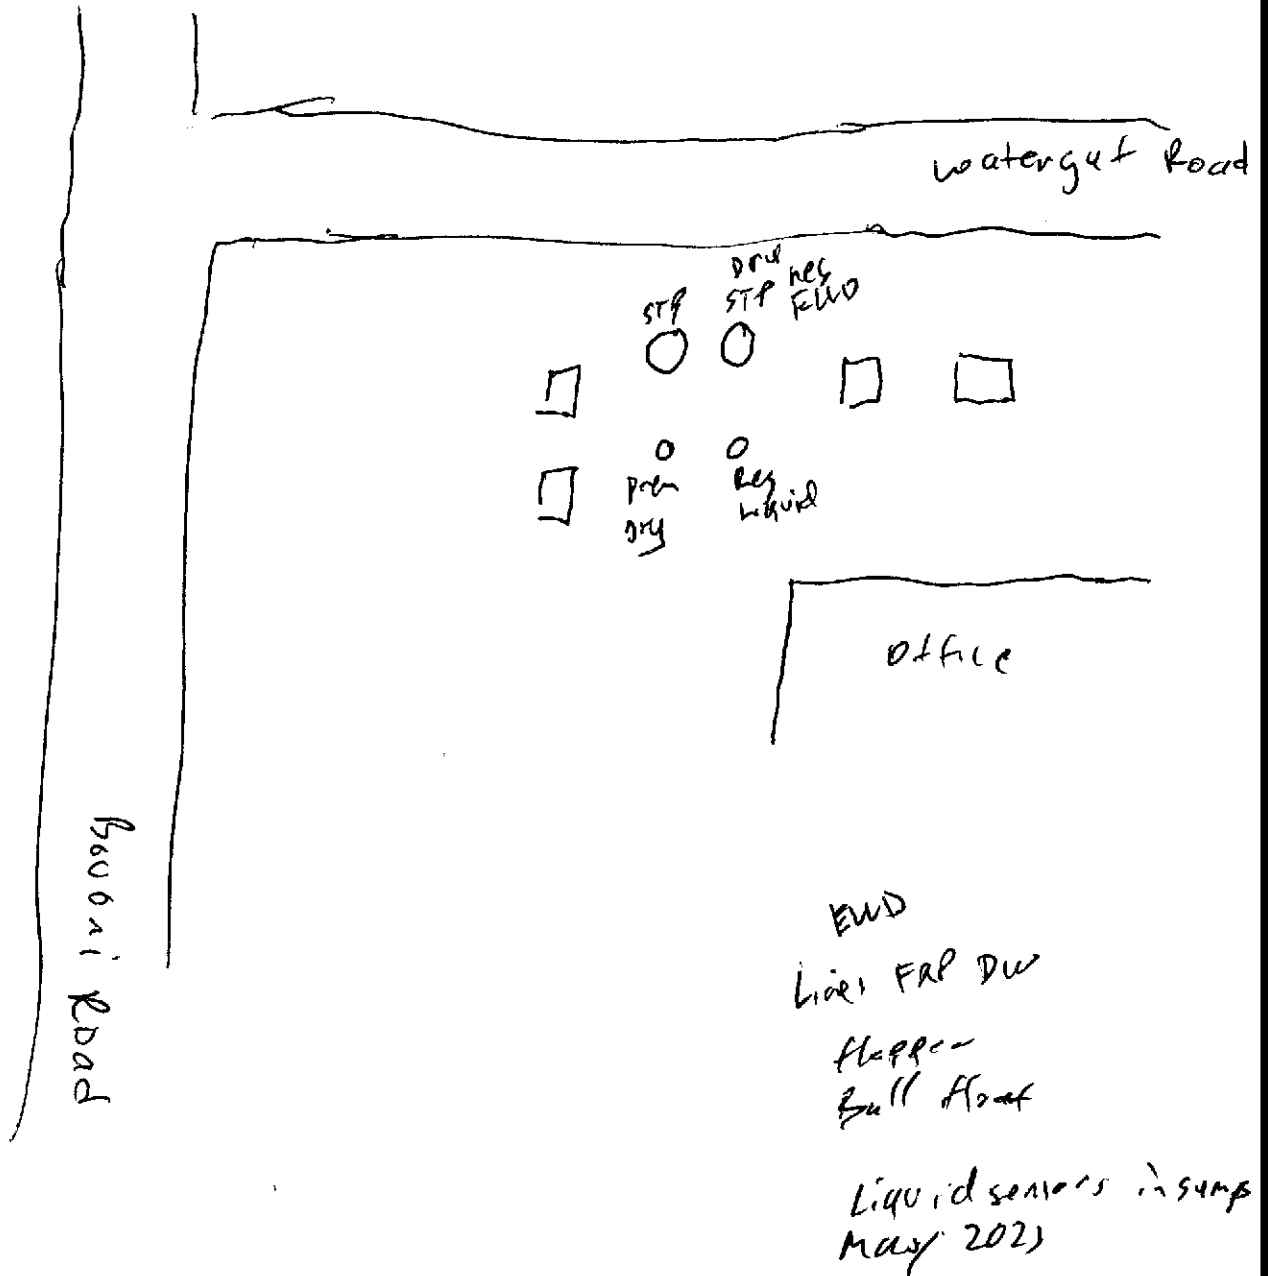 Watergut Road
STP
STP
Reg
EWD
Prem
Dry
Reg
Liquid
Office
Bovoni Road
EWD
Lines FRP DW
flapper
Ball float
Liquid sensors in sump
May